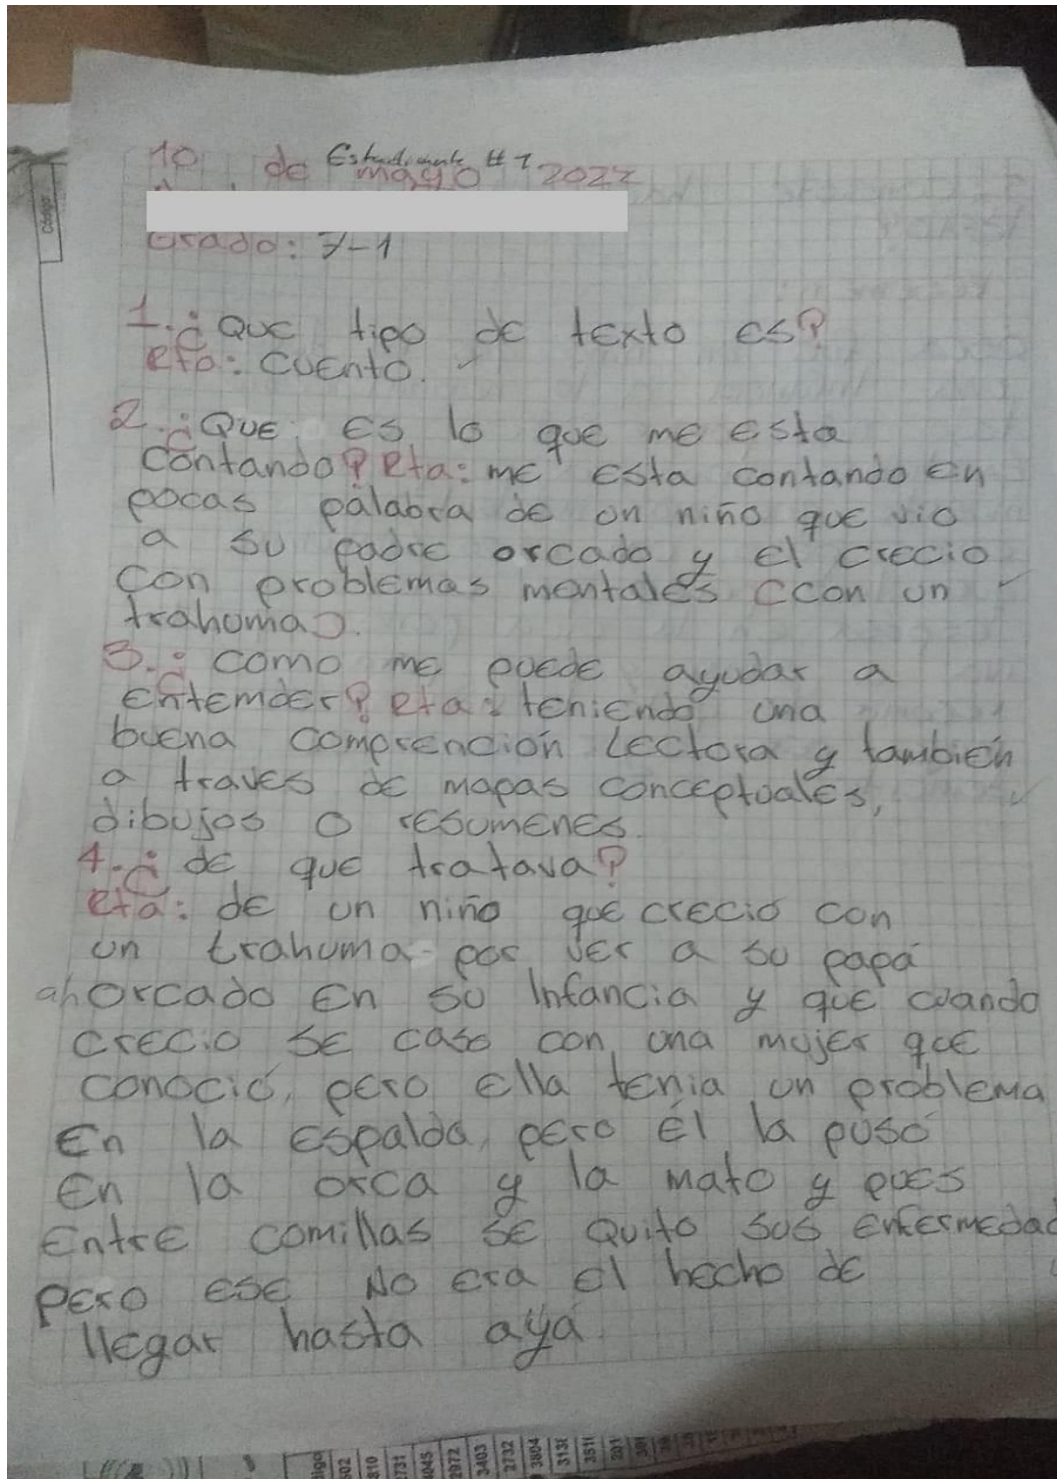 Código:
Estudiante #1
10 de mayo 2022
Grado: 7-1
1. ¿Que tipo de texto es?
Rta: Cuento.
2. ¿Que es lo que me esta
contando? Rta: me esta contando en
pocas palabra de un niño que vio
a su padre orcado y el crecio
con problemas mentales (con un
trahuma).
3. ¿como me puede ayudar a
entemder? Rta: teniendo una
buena comprención Lectora y también
a traves de mapas conceptuales,
dibujos o resumenes.
4. ¿de que tratava?
Rta: de un niño que creció con
un trahuma por ver a su papá
ahorcado en su Infancia y que cuando
crecio se caso con una mujer que
conoció, pero ella tenia un problema
en la espalda, pero él la pusó
en la orca y la mato y pues
entre comillas se quito sus enfermedad
pero ese No era el hecho de
llegar hasta ayá
502
810
2731
4045
2972
3403
2732
3804